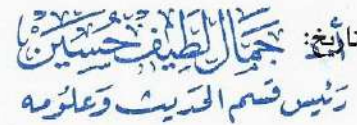 تاريخ: أ.د جمال لطيف حسين
رئيس قسم الحديث وعلومه